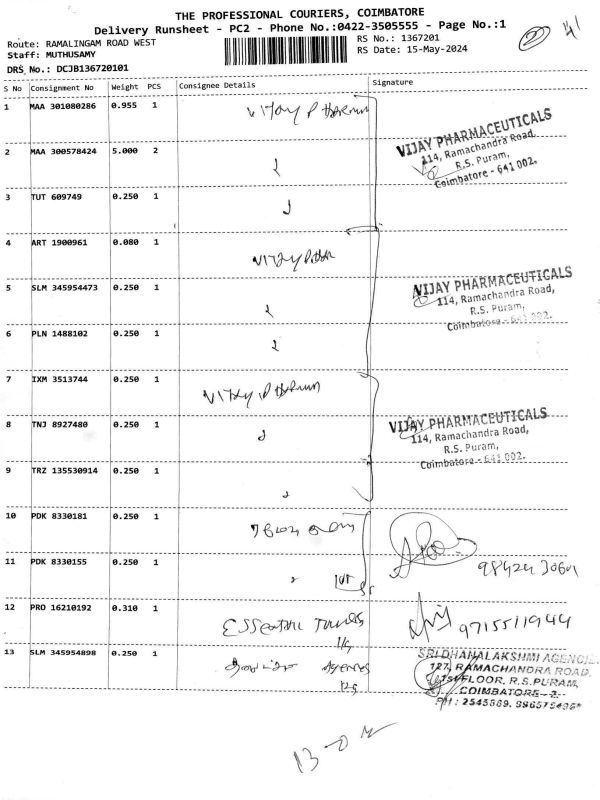 THE PROFESSIONAL COURIERS, COIMBATORE
Delivery Runsheet - PC2 - Phone No.:0422-3505555 - Page No.:1
Route: RAMALINGAM ROAD WEST
RS No.: 1367201
Staff: MUTHUSAMY
RS Date: 15-May-2024
DRS No.: DCJB136720101
S No Consignment No Weight PCS Consignee Details Signature
1 MAA 301080286 0.955 1 Vijay
VIJAY PHARMACEUTICALS
114, Ramachandra Road,
R.S. Puram,
Coimbatore - 641 002.
2 MAA 300578424 5.000 2
3 TUT 609749 0.250 1
4 ART 1900961 0.080 1 Vijay
5 SLM 345954473 0.250 1
VIJAY PHARMACEUTICALS
114, Ramachandra Road,
R.S. Puram,
Coimbatore - 641 002.
6 PLN 1488102 0.250 1
7 IXM 3513744 0.250 1 Vijay
8 TNJ 8927480 0.250 1
VIJAY PHARMACEUTICALS
114, Ramachandra Road,
R.S. Puram,
Coimbatore - 641 002.
9 TRZ 135530914 0.250 1
10 PDK 8330181 0.250 1
11 PDK 8330155 0.250 1
12 PRO 16210192 0.310 1 9715511944
13 SLM 345954898 0.250 1 Agencies
SRI DHANALAKSHMI AGENCIE
127, RAMACHANDRA ROAD,
FLOOR, R.S.PURAM,
COIMBATORE - 2.